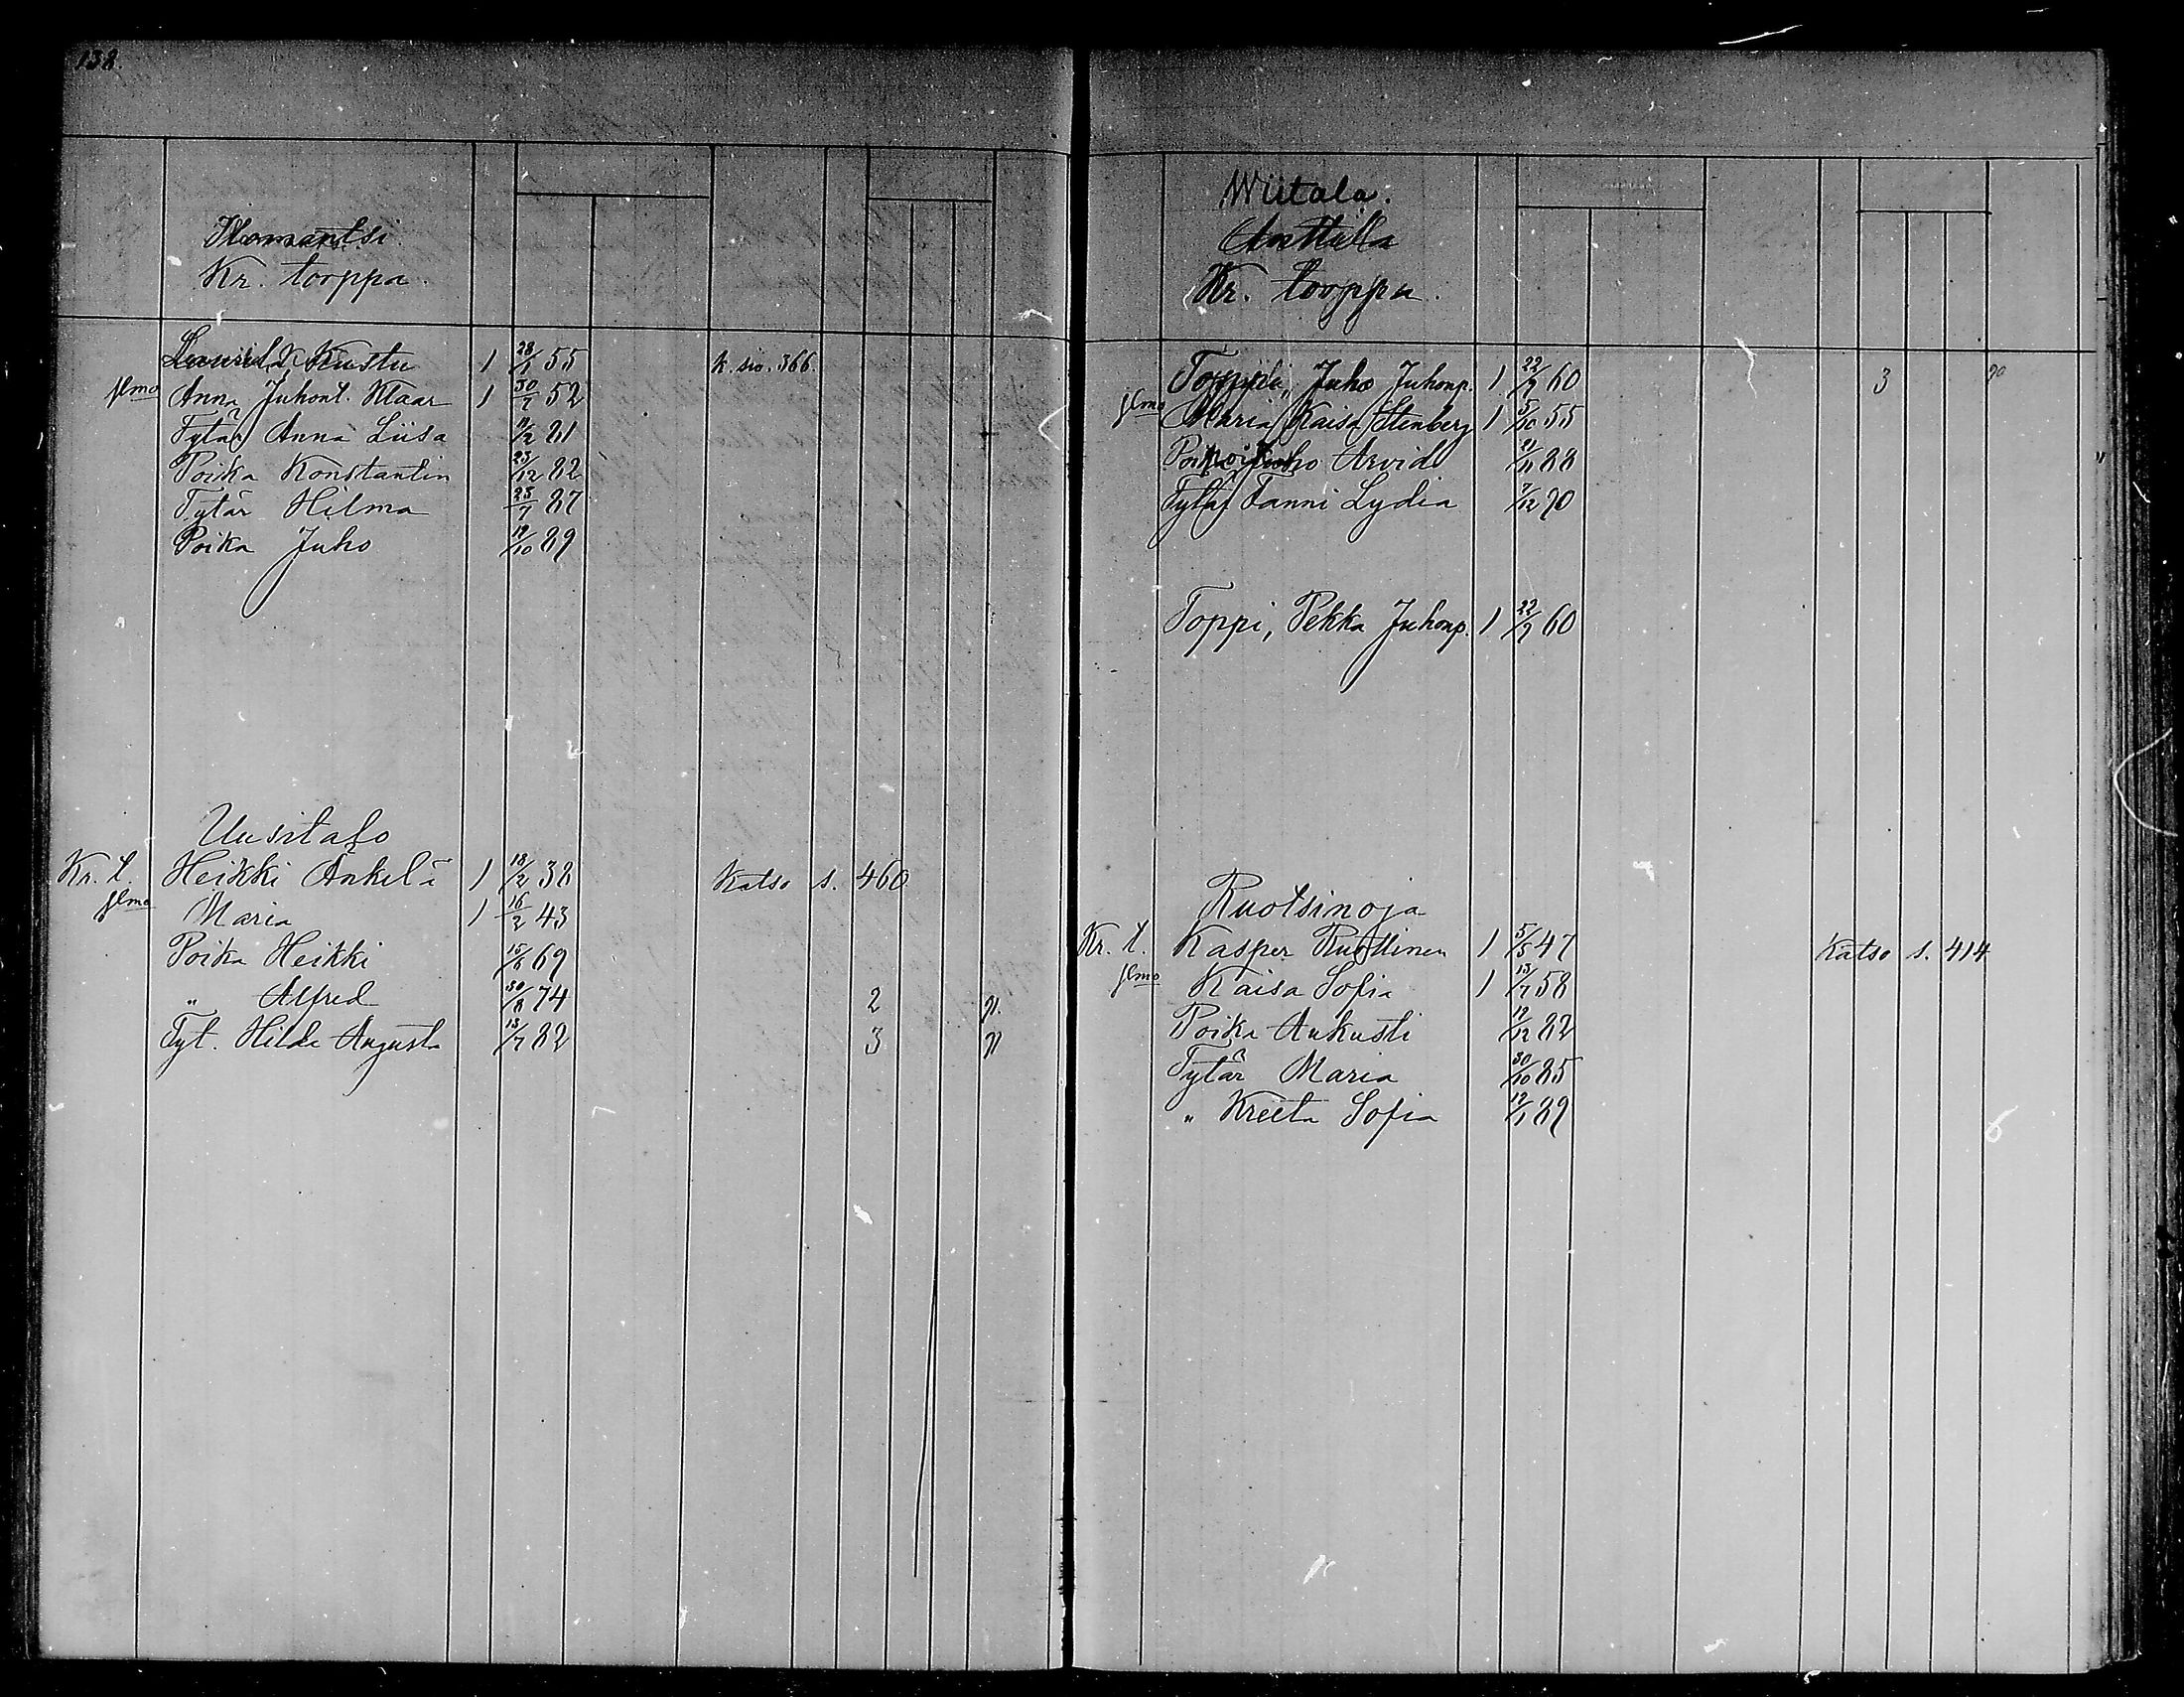 138.
Ilomantsi.
Kr. torppa.
Kustu 1 28/1 55 K. siv. 366.
jlmo Anna Juhont. Klaar 1 30/7 52
Tytär Anna Liisa 11/2 81
Poika Konstantin 23/12 82
Tytär Hilma 23/7 87
Poika Juho 19/10 89
Uusitalo
Kr. t. Heikki Ankelä 1 18/2 38 Katso s. 460
jlmo Maria 1 16/2 43
Poika Heikki 15/8 69
" Alfred 30/8 74 2 n.
Tyt. Hilda Augusta 13/7 82 3 n
Wiitala.
Anttila
Kr. torppa.
Toppi, Juho Juhonp. 1 22/9 60 3
jlmo Maria Kaisa Stenberg 1 5/10 55
Poika Juho Arvid 21/11 88
Tytär Fanni Lydia 7/12 90
Toppi, Pekka Juhonp. 1 22/9 60
Ruotsinoja
Kr. t. Kasper Ruottinen 1 5/5 47 Katso s. 414
jlmo Kaisa Sofia 1 13/7 58
Poika Aukusti 12/12 82
Tytär Maria 30/10 85
" Kreeta Sofia 12/1 89